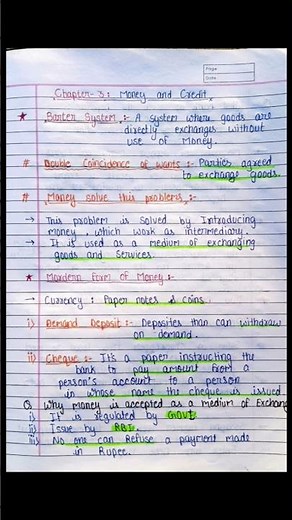 Page:
Date:
Chapter-3: Money and Credit
★ Barter System :- A system where goods are
directly exchanges without
use of Money.
# Double Coincidence of wants :- Parties agreed
to exchange goods.
# Money solve this problems :-
→ This problem is solved by Introducing
money, which work as intermediary.
→ It if used as a medium of exchanging
goods and Services.
★ Mordern Form of Money :-
→ Currency : Paper notes & coins.
i) Demand Deposit :- Deposites than can withdraw
on demand.
ii) Cheque :- It's a paper instructing the
bank to pay amount from a
person's account to a person
in whose name the cheque is issued
Q Why money is accepted as a medium of Exchang
i) It is regulated by GOVT.
ii) Issue by RBI.
iii) No one can Refuse a payment made
in Rupee.